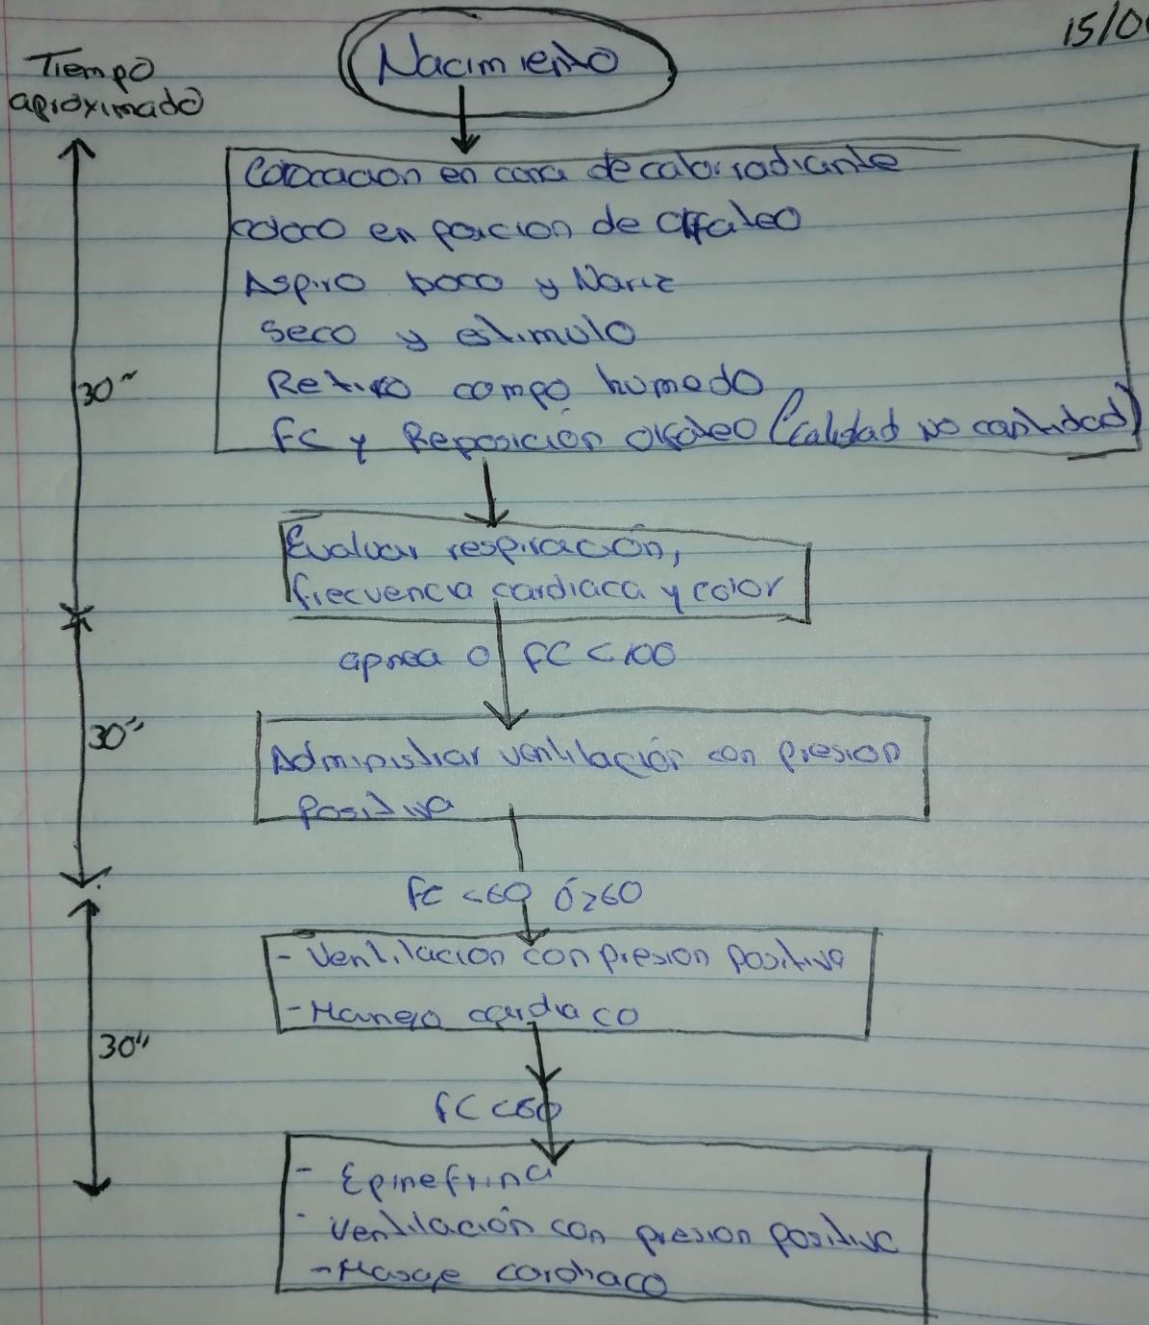 15/0
Tiempo
aproximado
Nacimiento
Colocacion en cona de calor radiante
coloco en posicion de olfateo
Aspiro boca y Nariz
Seco y estimulo
Retiro campo humedo
FC y Reposición olfateo (calidad no cantidad)
30"
Evaluar respiración,
frecuencia cardiaca y color
apnea o FC <100
30"
Administrar ventilación con presion
positiva
FC <60 ó ≥60
- Ventilacion con presion positiva
- Manejo cardiaco
30"
FC <60
- Epinefrina
- Ventilación con presion positiva
- Masaje cardiaco